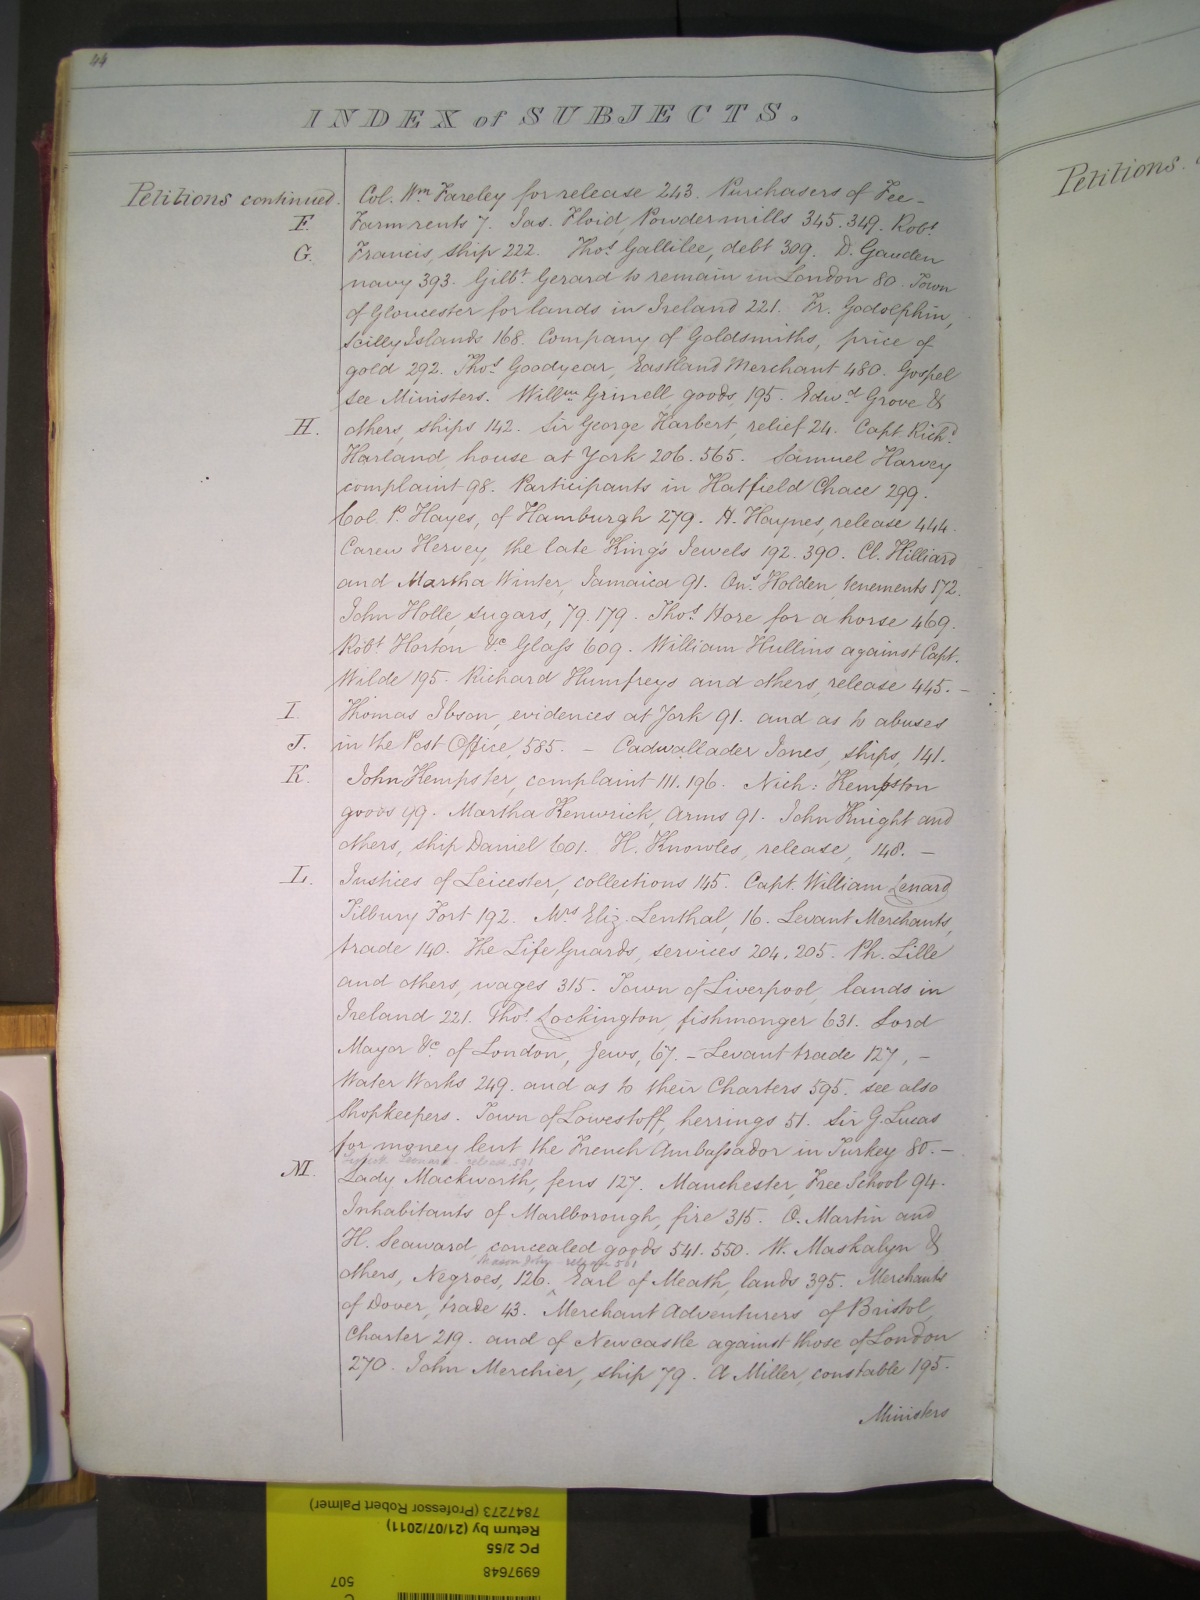 44
INDEX of SUBJECTS.
Petitions continued. Col. Wm Fareley for release 243. Purchasers of Fee-
F. Farm rents 7. Jas. Floid, Powdermills 345. 349. Robt
G. Francis, ship 222. Thos Gallilee, debt 309. D. Gauden
navy 393. Gilbt Gerard to remain in London 80. Town
of Gloucester for lands in Ireland 221. Fr. Godolphin,
Scilly Islands 168. Company of Goldsmiths, price of
gold 292. Thos Goodyear, Eastland Merchant 480. Gospel
see Ministers. Willm Grinell goods 195. Edwd Grove &
H. others, ships 142. Sir George Harbert, relief 24. Capt. Richd
Harland, house at York 206. 565. Samuel Harvey
complaint 98. Participants in Hatfield Chace 299.
Col. P. Hayes, of Hamburgh 279. H. Haynes, release 444.
Carew Hervey, the late King's Jewels 192. 390. Cl. Hilliard
and Martha Winter, Jamaica 91. Ons Holden, tenements 172.
John Holle, sugars, 79. 179. Thos Hore for a horse 469.
Robt Horton &c Glass 609. William Hullins against Capt.
Wilde 195. Richard Humfreys and others, release 445. -
I. Thomas Ibson, evidences at York 91. and as to abuses
J. in the Post Office, 585. - Cadwallader Jones, ships, 141.
K. John Kempster, complaint 111. 196. Nich: Kempston
goods 99. Martha Kenwrick, Arms 91. John Knight and
others, ship Daniel 601. H. Knowles, release, 148. -
L. Justices of Leicester, collections 145. Capt. William Lenard
Tilbury Fort 192. Mrs Eliz. Lenthal, 16. Levant Merchants,
trade 140. The Life Guards, services 204. 205. Ph. Lille
and others, wages 315. Town of Liverpool, lands in
Ireland 221. Thos Lockington, fishmonger 631. Lord
Mayor &c of London, Jews, 67. - Levant trade 127, -
Water Works 249. and as to their Charters 595. see also
Shopkeepers. Town of Lowestoff, herrings 51. Sir G. Lucas
for money lent the French Ambassador in Turkey 80. -
Leonard release 591
M. Lady Mackworth, fens 127. Manchester, Free School 94.
Inhabitants of Marlborough, fire 315. O. Martin and
H. Seaward, concealed goods 541. 550. W. Maskalyn &
Mason John release 561
others, Negroes, 126. Earl of Meath, lands 395. Merchants
of Dover, trade 43. Merchant Adventurers of Bristol,
Charter 219. and of Newcastle against those of London
270. John Merchier, ship 79. A Miller, constable 195.
Ministers
Petitions.
507
6997648
PC 2/55
Return by (21/07/2011)
7847273 (Professor Robert Palmer)